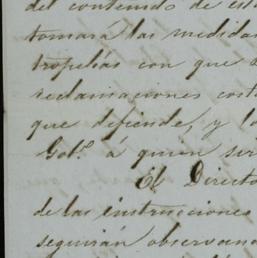 del contenido de est
tomará las medidas
tropelías con que
reclamaciones cost
que defiende, y l
Gobº. á quien ser
El Directo
de las instrucciones
seguirán observan